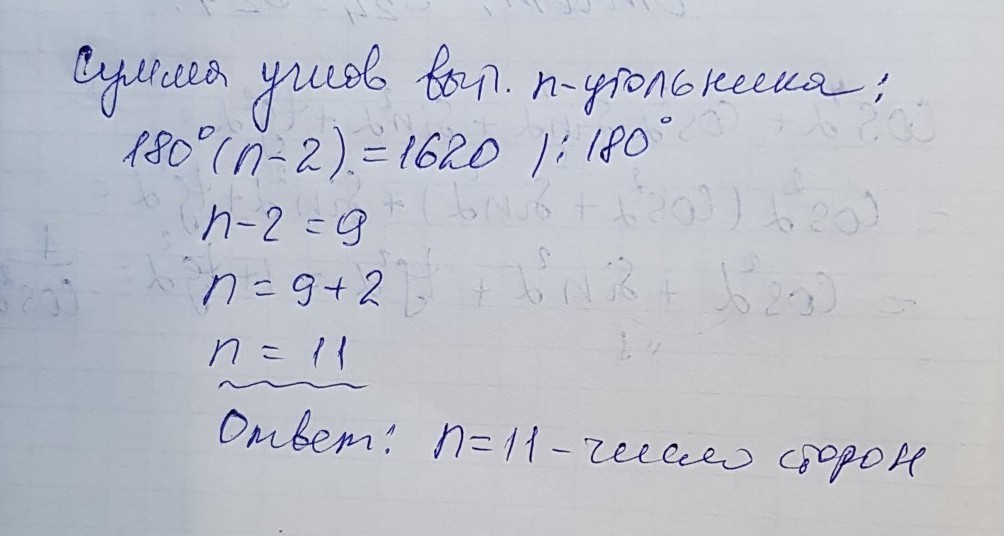 Сумма углов вып. n-угольника:
180°(n-2) = 1620 |:180°
n-2=9
n=9+2
n = 11
Ответ: n=11 - число сторон